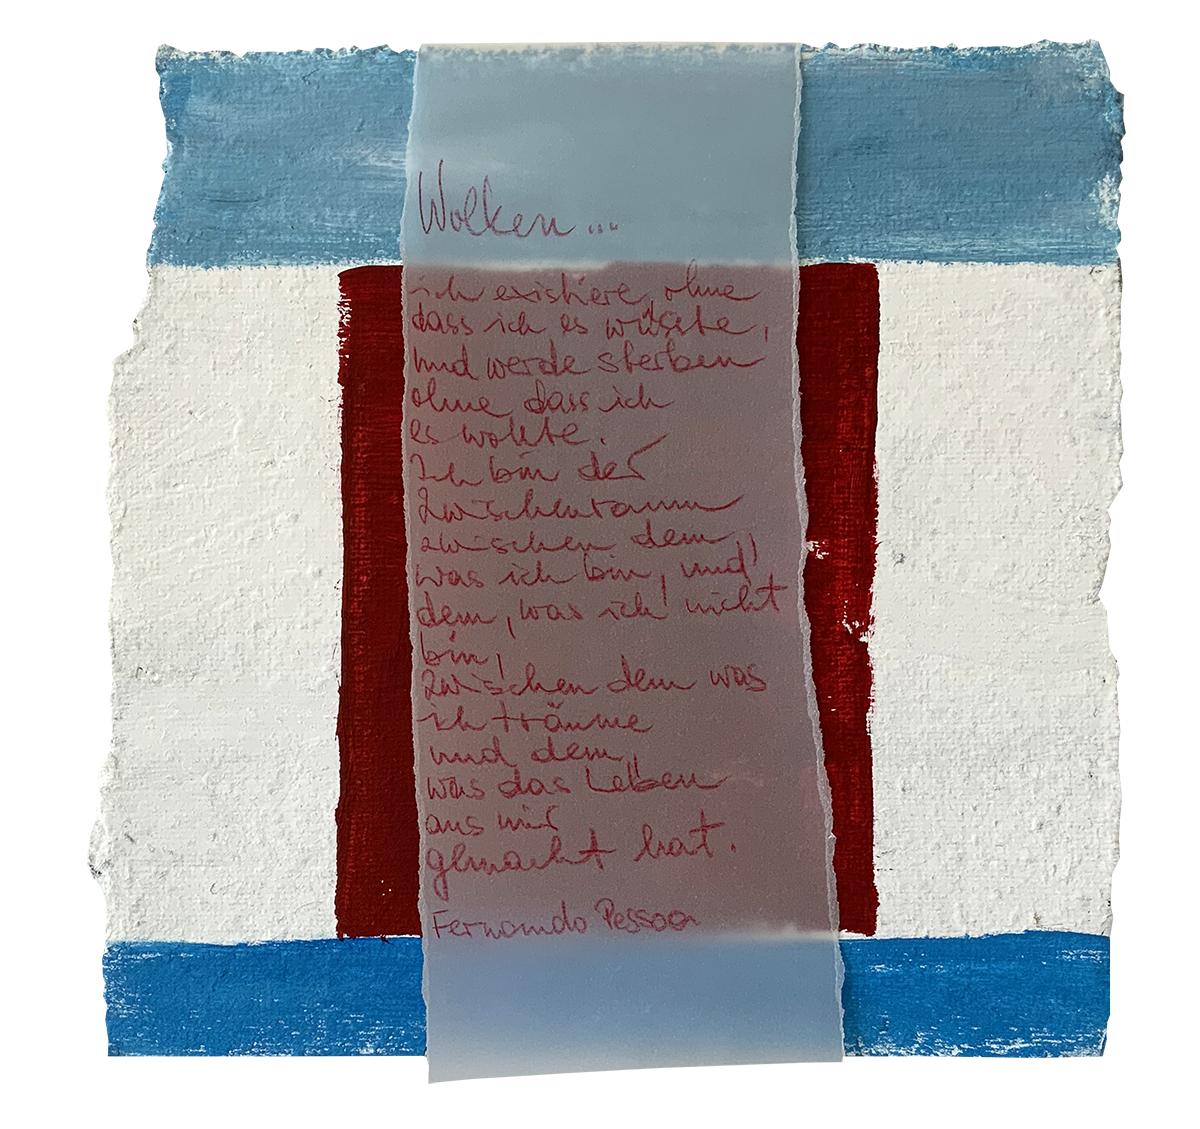 Wolken...
ich existiere, ohne
dass ich es wüsste,
und werde sterben
ohne dass ich
es wollte.
Ich bin der
Zwischenraum
zwischen dem,
was ich bin, und
dem, was ich nicht
bin,
zwischen dem was
ich träume
und dem,
was das Leben
aus mir
gemacht hat.
Fernando Pessoa